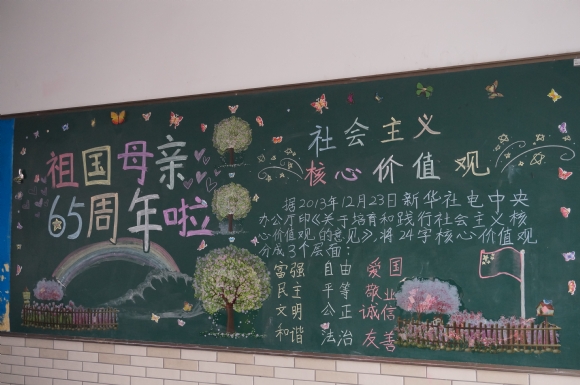 祖国母亲
65周年啦
社会主义
核心价值观
据2013年12月23日新华社电中央
办公厅印《关于培育和践行社会主义核
心价值观的意见》,将24字核心价值观
分成3个层面:
富强 自由 爱国
民主 平等 敬业
文明 公正 诚信
和谐 法治 友善